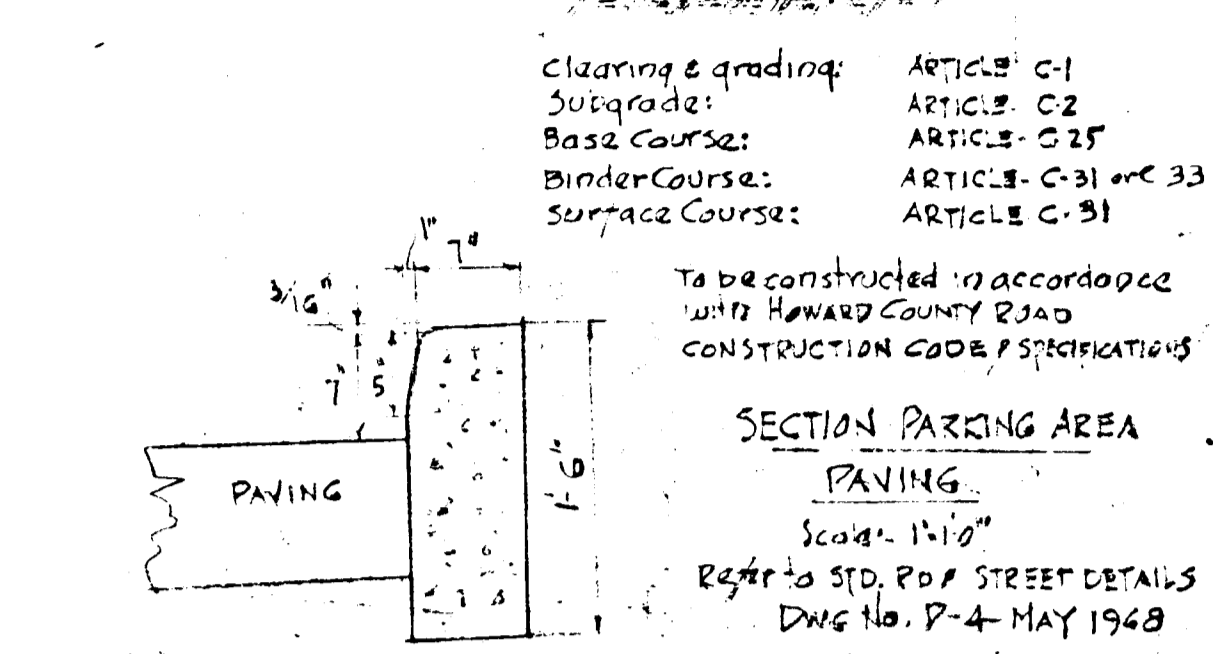 Clearing & grading: ARTICLE C-1
Subgrade: ARTICLE- C-2
Base Course: ARTICLE- C-25
Binder Course: ARTICLE- C-31 or 33
Surface Course: ARTICLE C-31
1"
7"
3/16"
7"
5"
1'-6"
PAVING
To be constructed in accordance
with HOWARD COUNTY ROAD
CONSTRUCTION CODE & SPECIFICATIONS
SECTION PARKING AREA
PAVING
Scale- 1"=1'0"
Refer to STD. STREET DETAILS
DWG No. MAY 1968